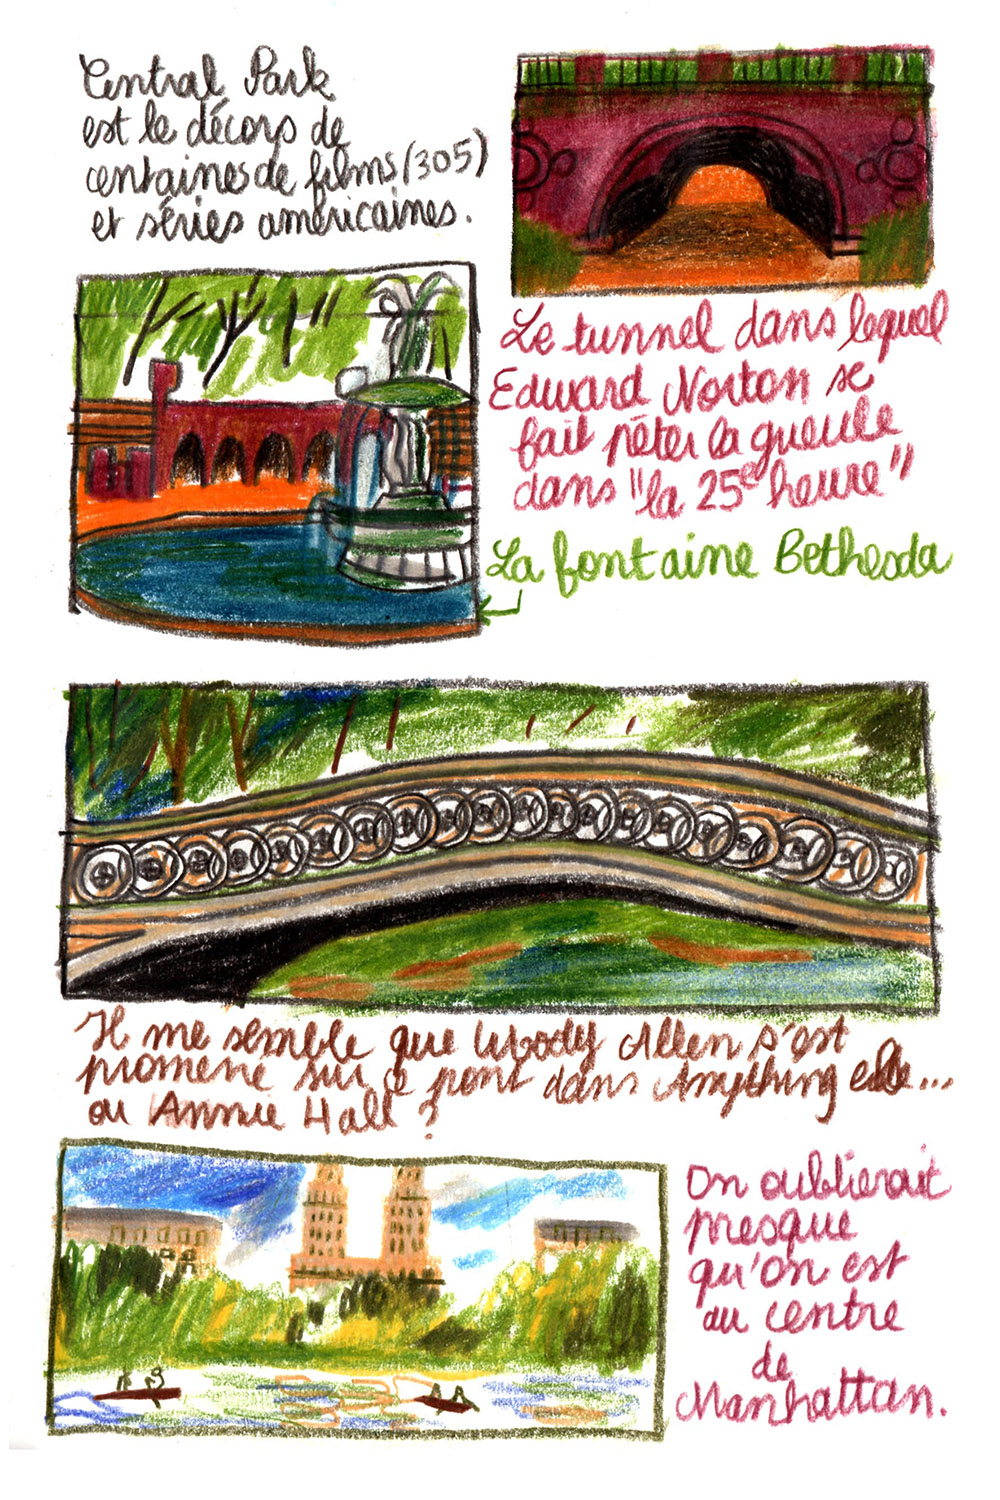 Central Park
est le décors de
centaines de films (305)
et séries américaines.
Le tunnel dans lequel
Edward Norton se
fait péter la gueule
dans "la 25e heure"
La fontaine Bethesda
Il me semble que Woody Allen s'est
promené sur ce pont dans Anything else...
ou Annie Hall ?
On oublierait
presque
qu'on est
au centre
de
Manhattan.